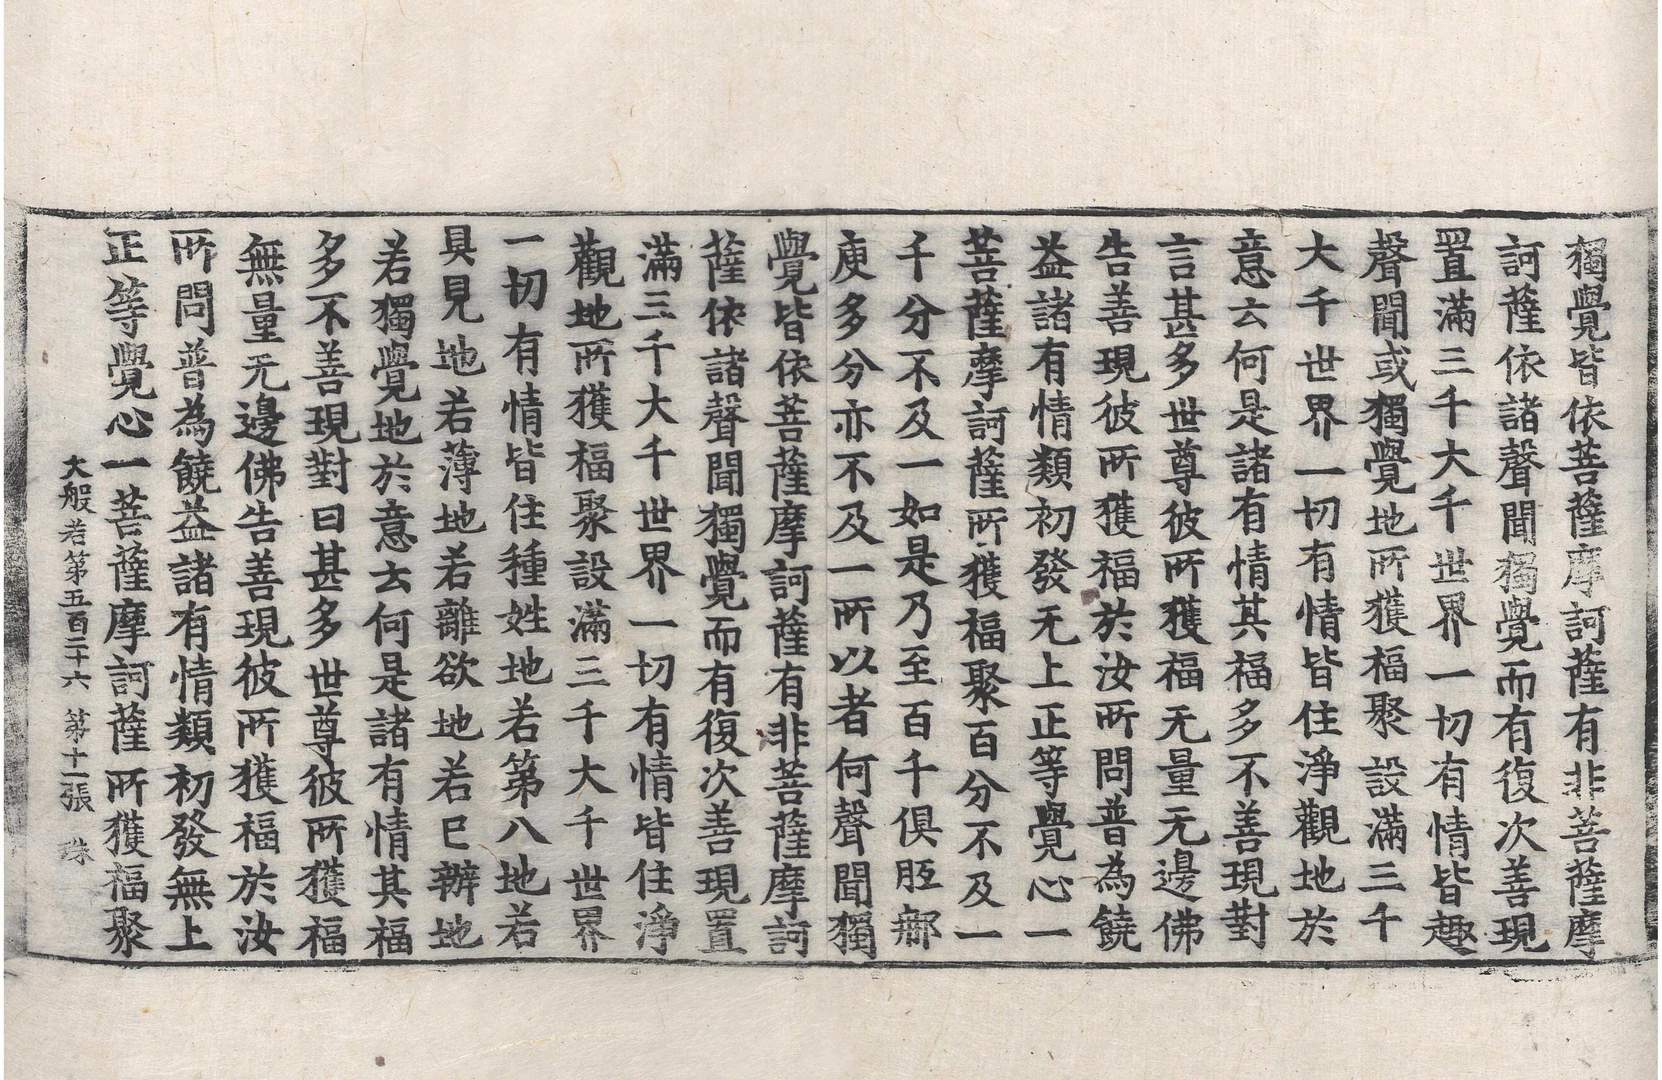 獨覺皆依菩薩摩訶薩有非菩薩摩
訶薩依諸聲聞獨覺而有復次善現
置滿三千大千世界一切有情皆趣
聲聞或獨覺地所獲福聚設滿三千
大千世界一切有情皆住淨觀地於
意云何是諸有情其福多不善現對
言甚多世尊彼所獲福无量无邊佛
告善現彼所獲福於汝所問普為饒
益諸有情類初發无上正等覺心一
菩薩摩訶薩所獲福聚百分不及一
千分不及一如是乃至百千俱胝那
庾多分亦不及一所以者何聲聞獨
覺皆依菩薩摩訶薩有非菩薩摩訶
薩依諸聲聞獨覺而有復次善現置
滿三千大千世界一切有情皆住淨
觀地所獲福聚設滿三千大千世界
一切有情皆住種姓地若第八地若
具見地若薄地若離欲地若已辦地
若獨覺地於意云何是諸有情其福
多不善現對曰甚多世尊彼所獲福
無量无邊佛告善現彼所獲福於汝
所問普為饒益諸有情類初發無上
正等覺心一菩薩摩訶薩所獲福聚
大般若第五百二十六 第十一張 珠